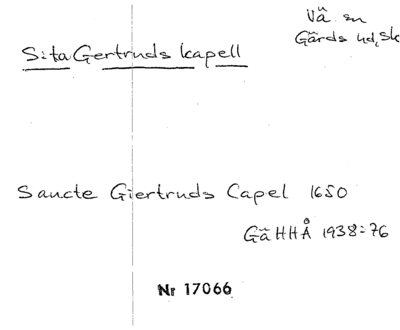 Vä sn
Gärds hd, Sk
S:ta Gertruds kapell
Sancte Giertruds Capel 1650
GäHHÅ 1938:76
Nr 17066